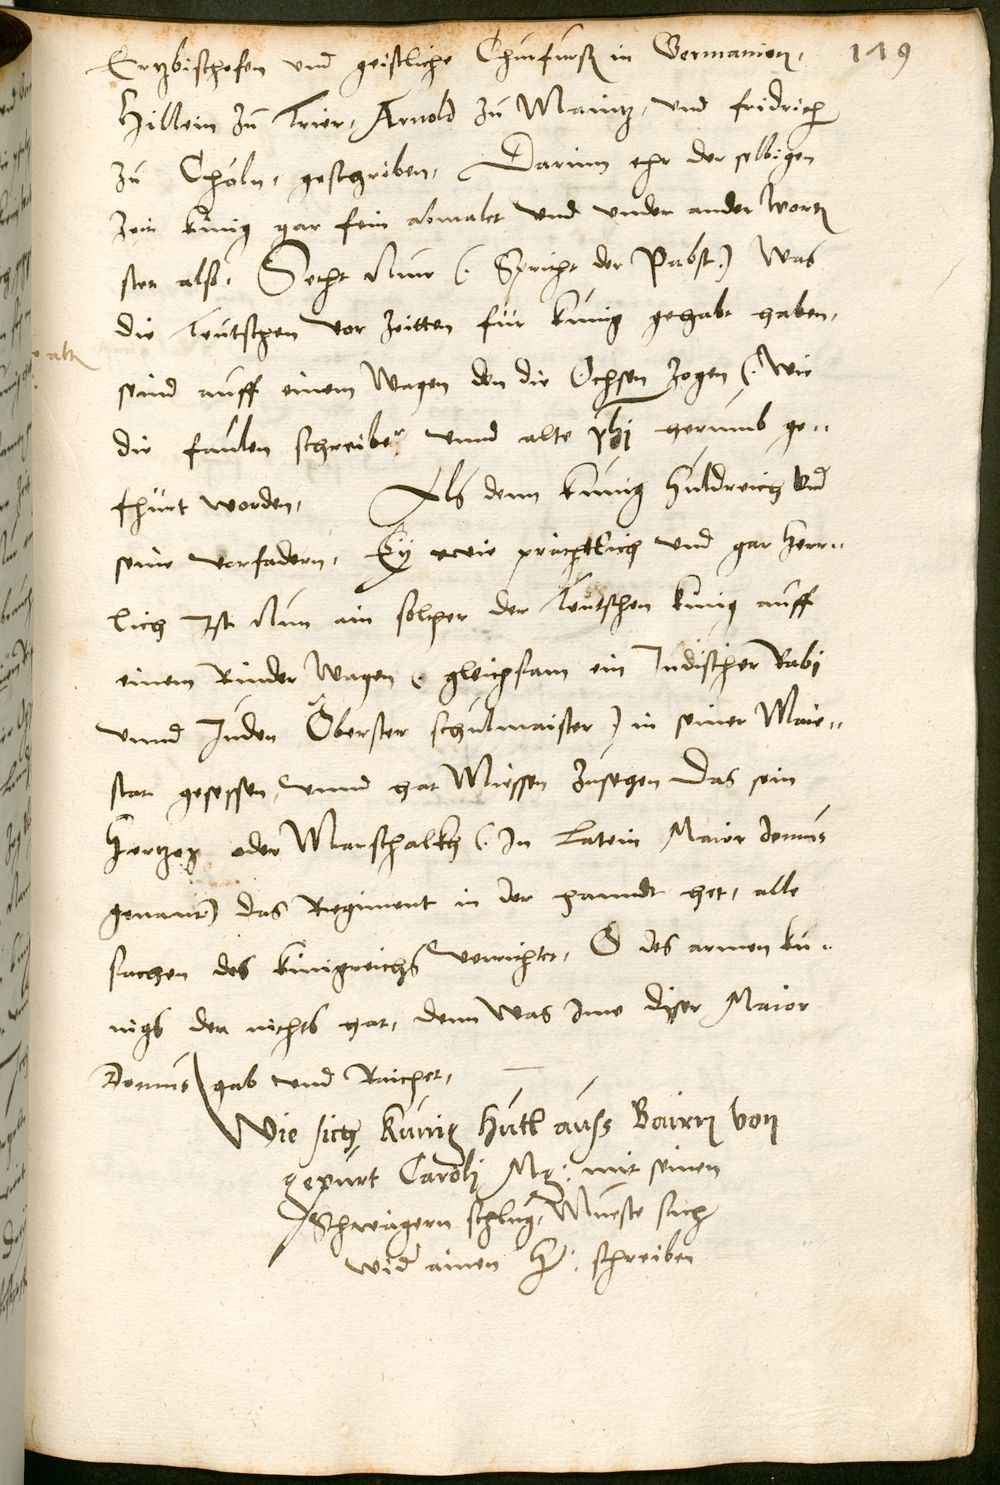 119
Ertzbischofen vnd geistliche Churfurst in Germanien,
Hillein zu Trier, Arnold zu Maintz, vnd fridrich
zu Chöln, geschriben, Darinn ehr der selbigen
Zeit künig gar fein abmalet vnd vnder ander wortt
stet also. Secht Nuer (. Spricht der Pabst.) Was
die Teutschen vor Zeitten für künig gehabt haben,
seind auff einem Wagen den die Ochsen Zogen (. Wie
die faulen schreiber vnnd alte phj herumb ge=
fhürt worden, Als denn künig Huldreich vnd
seine vorfadern, Ey wie prächtlich vnd gar herr=
lich Ist Nun ain solcher der Teutschen künig auff
einem Rinder Wagen (. gleichsam ein Judischer Rabi
vnnd Juden Oberster schulmaister) in seiner Maie=
stat gesessen, vnnd hat Miessen Zusehen Das sein
Hertzog oder Marschalkh (. In Latein Maior domus
genant) das Regiment in der handt het, alle
sachen des künigreichs verrichtet, O des armen kü=
nigs der nichts hat, denn was Ime diser Maior
Domus gab vnd Raichet,
Wie sich künig Hutl auss Bairn von
gepurt Carolj Mg: mit seinen
Schwägern schlug, Mueste sich
wid ainen H: schreiben